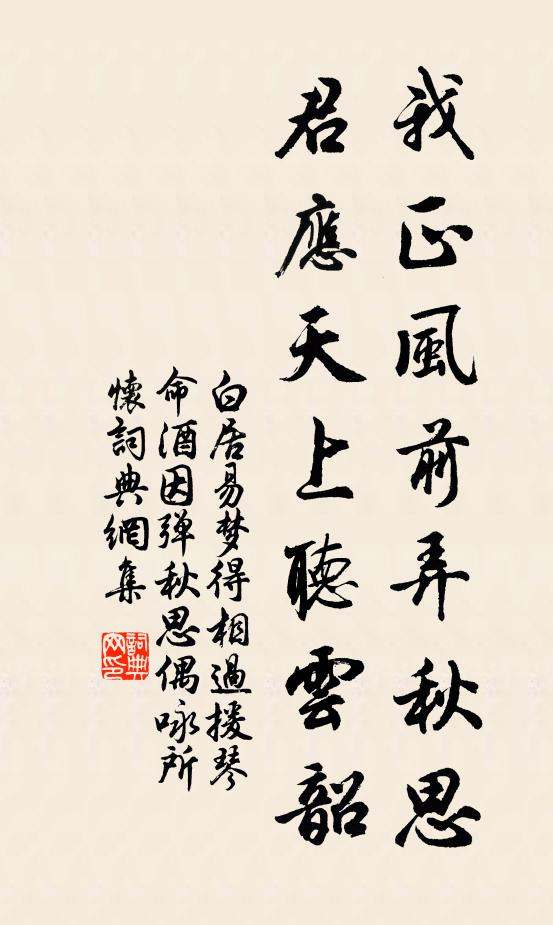 我正風前弄秋思
君應天上聽雲韶
白居易梦得相過援琴
命酒因弹秋思偶咏所
懷詞典網集
詞典網印